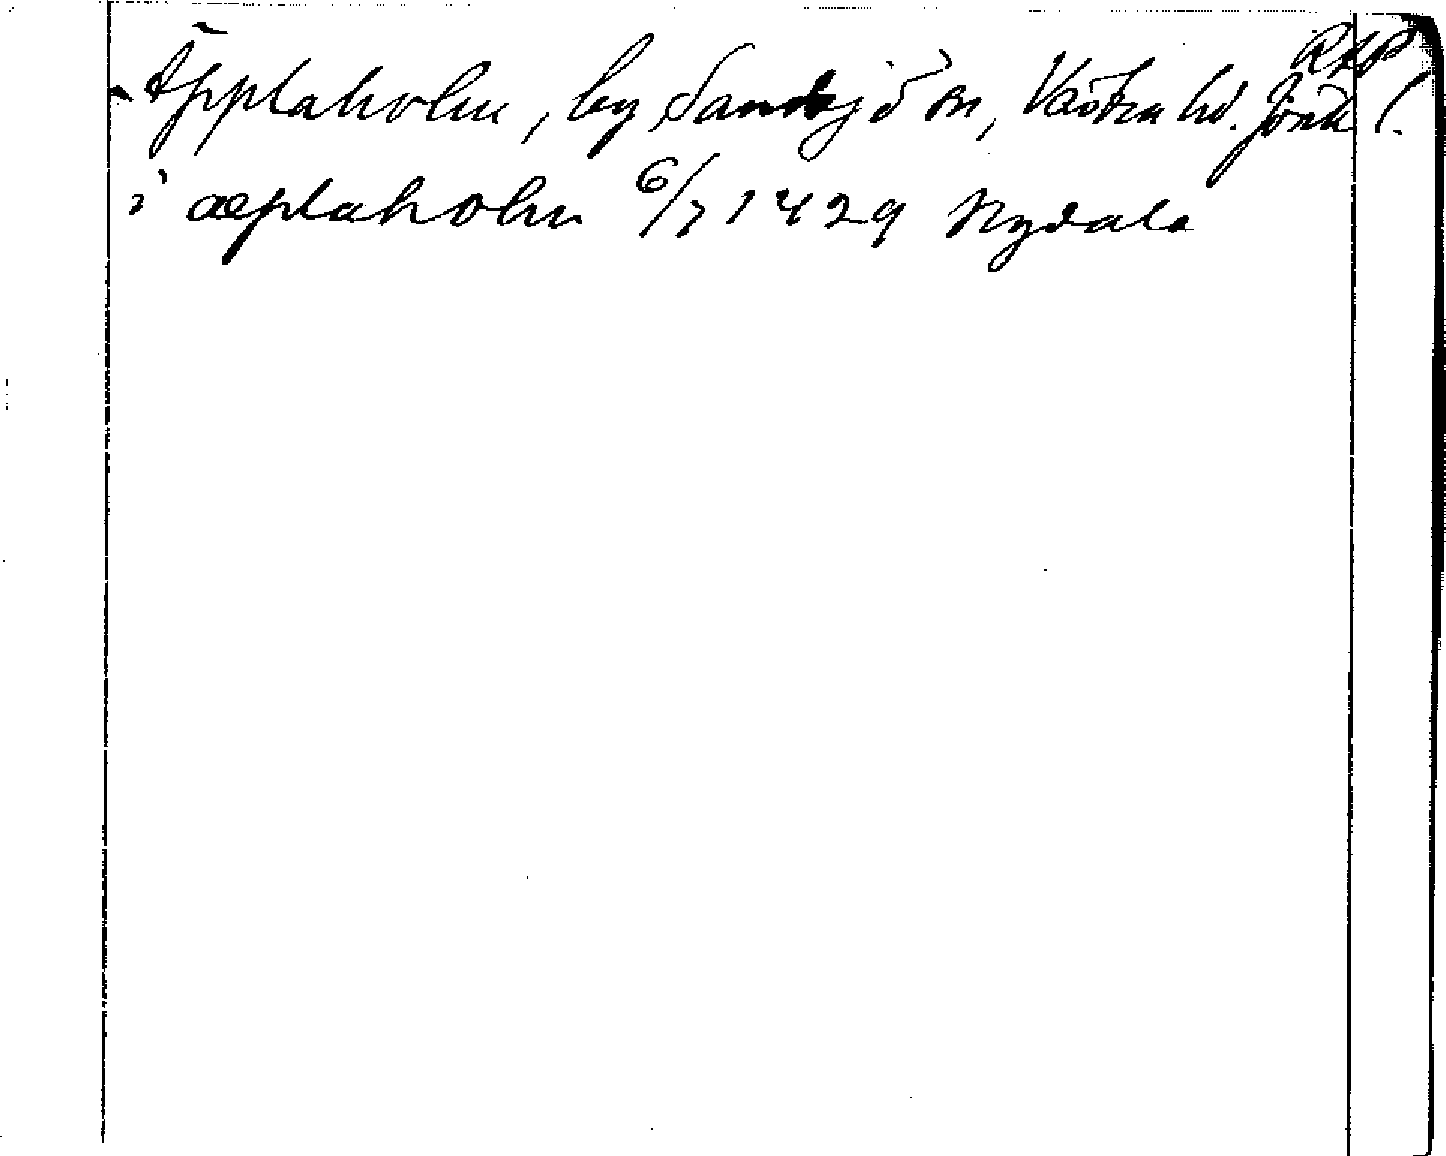 RAP
Äpplaholm, by Sandsjö sn, Västra hd. Jönk l.
i æplaholm 6/7 1429 Nydala